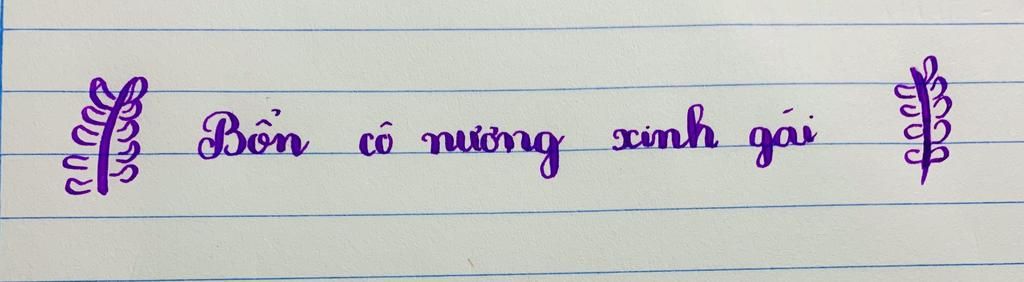 Bổn cô nương xinh gái